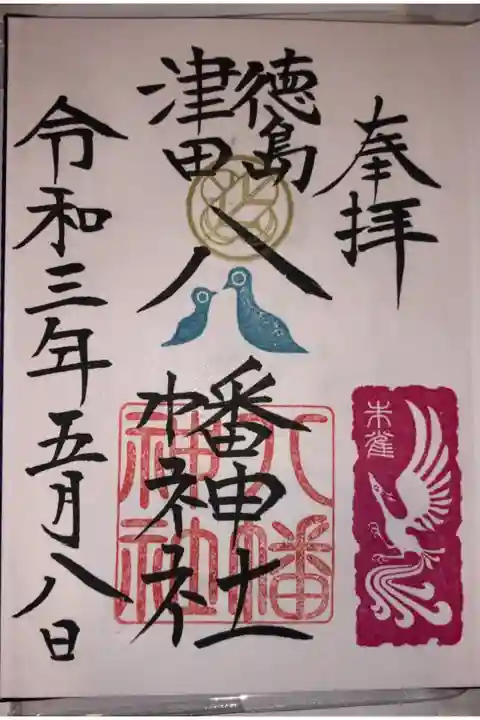 奉拝
徳島
津田
八幡神社
令和三年五月八日
八幡
神社
朱雀